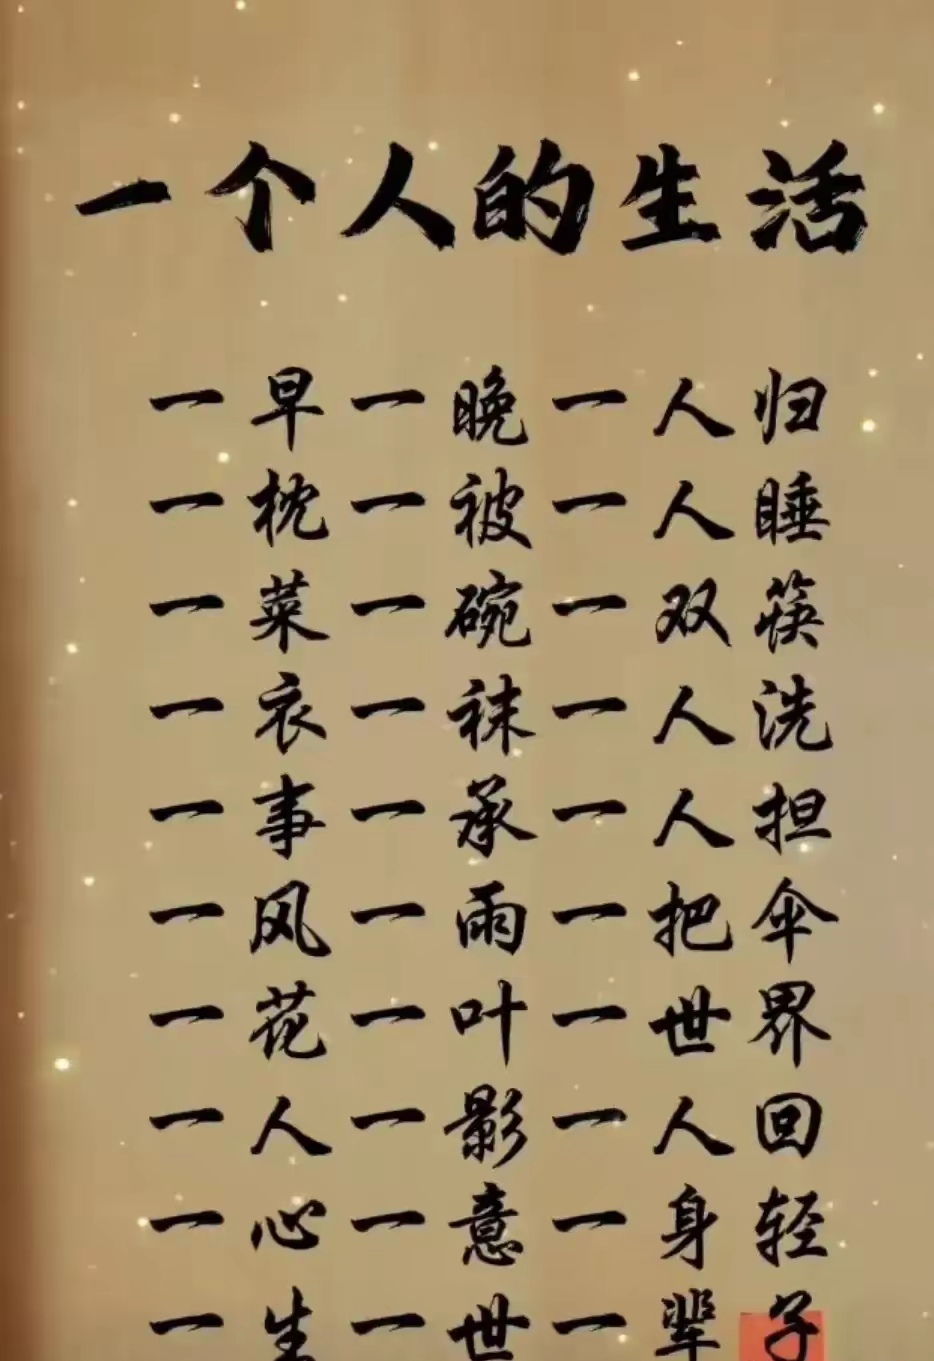 一个人的生活
一早一晚一人归
一枕一被一人睡
一菜一碗一双筷
一衣一袜一人洗
一事一承一人担
一风一雨一把伞
一花一叶一世界
一人一影一人回
一心一意一身轻
一生一世一辈子